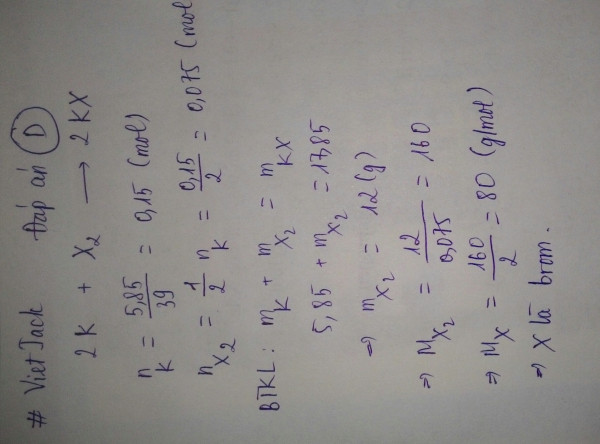 # VietJack Đáp án D
2K + X₂ → 2KX
n_K = 5,85/39 = 0,15 (mol)
n_X₂ = 1/2 n_K = 0,15/2 = 0,075 (mol
BTKL: m_K + m_X₂ = m_KX
5,85 + m_X₂ = 17,85
⇒ m_X₂ = 12 (g)
⇒ M_X₂ = 12/0,075 = 160
⇒ M_X = 160/2 = 80 (g/mol)
⇒ X là brom.